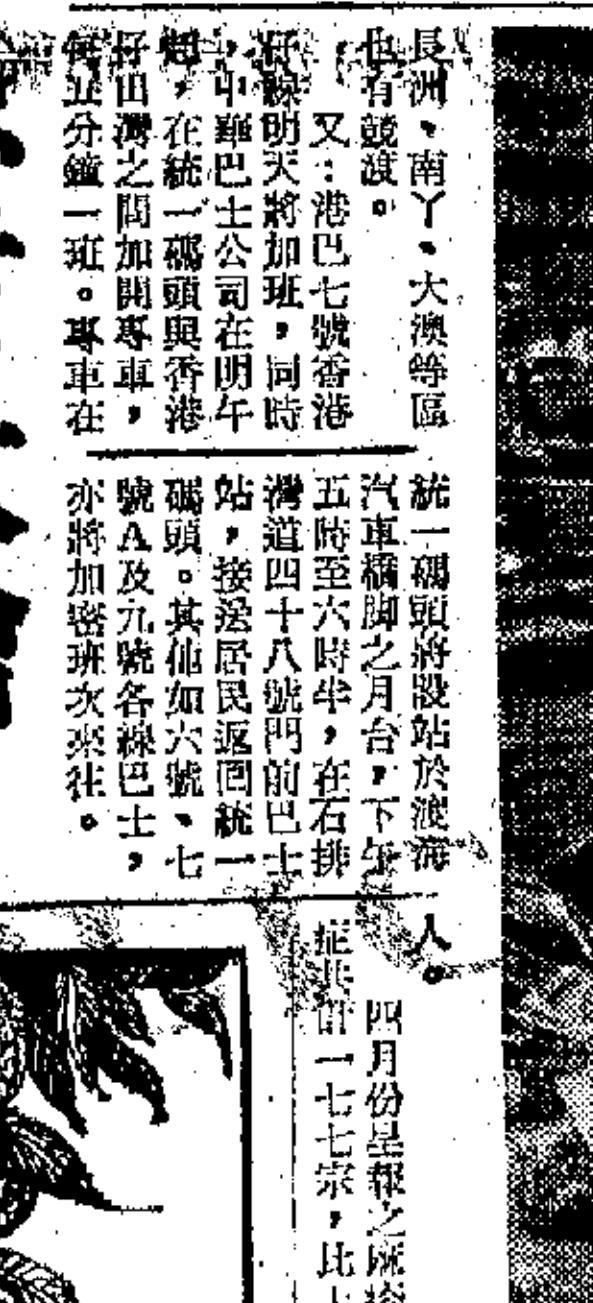 長洲、南丫、大澳等區
也有競渡。
又：港巴七號香港
仔線明天將加班，同時
，中華巴士公司在明午
起，在統一碼頭與香港
仔田灣之間加開專車，
每五分鐘一班。專車在
統一碼頭將設站於渡海
汽車橋脚之月台，下午
五時至六時半，在石排
灣道四十八號門前巴士
站，接送居民返回統一
碼頭。其他如六號、七
號A及九號各線巴士，
亦將加密班次來往。
人。
四月份呈報之麻疹
症共計一七七宗，比上